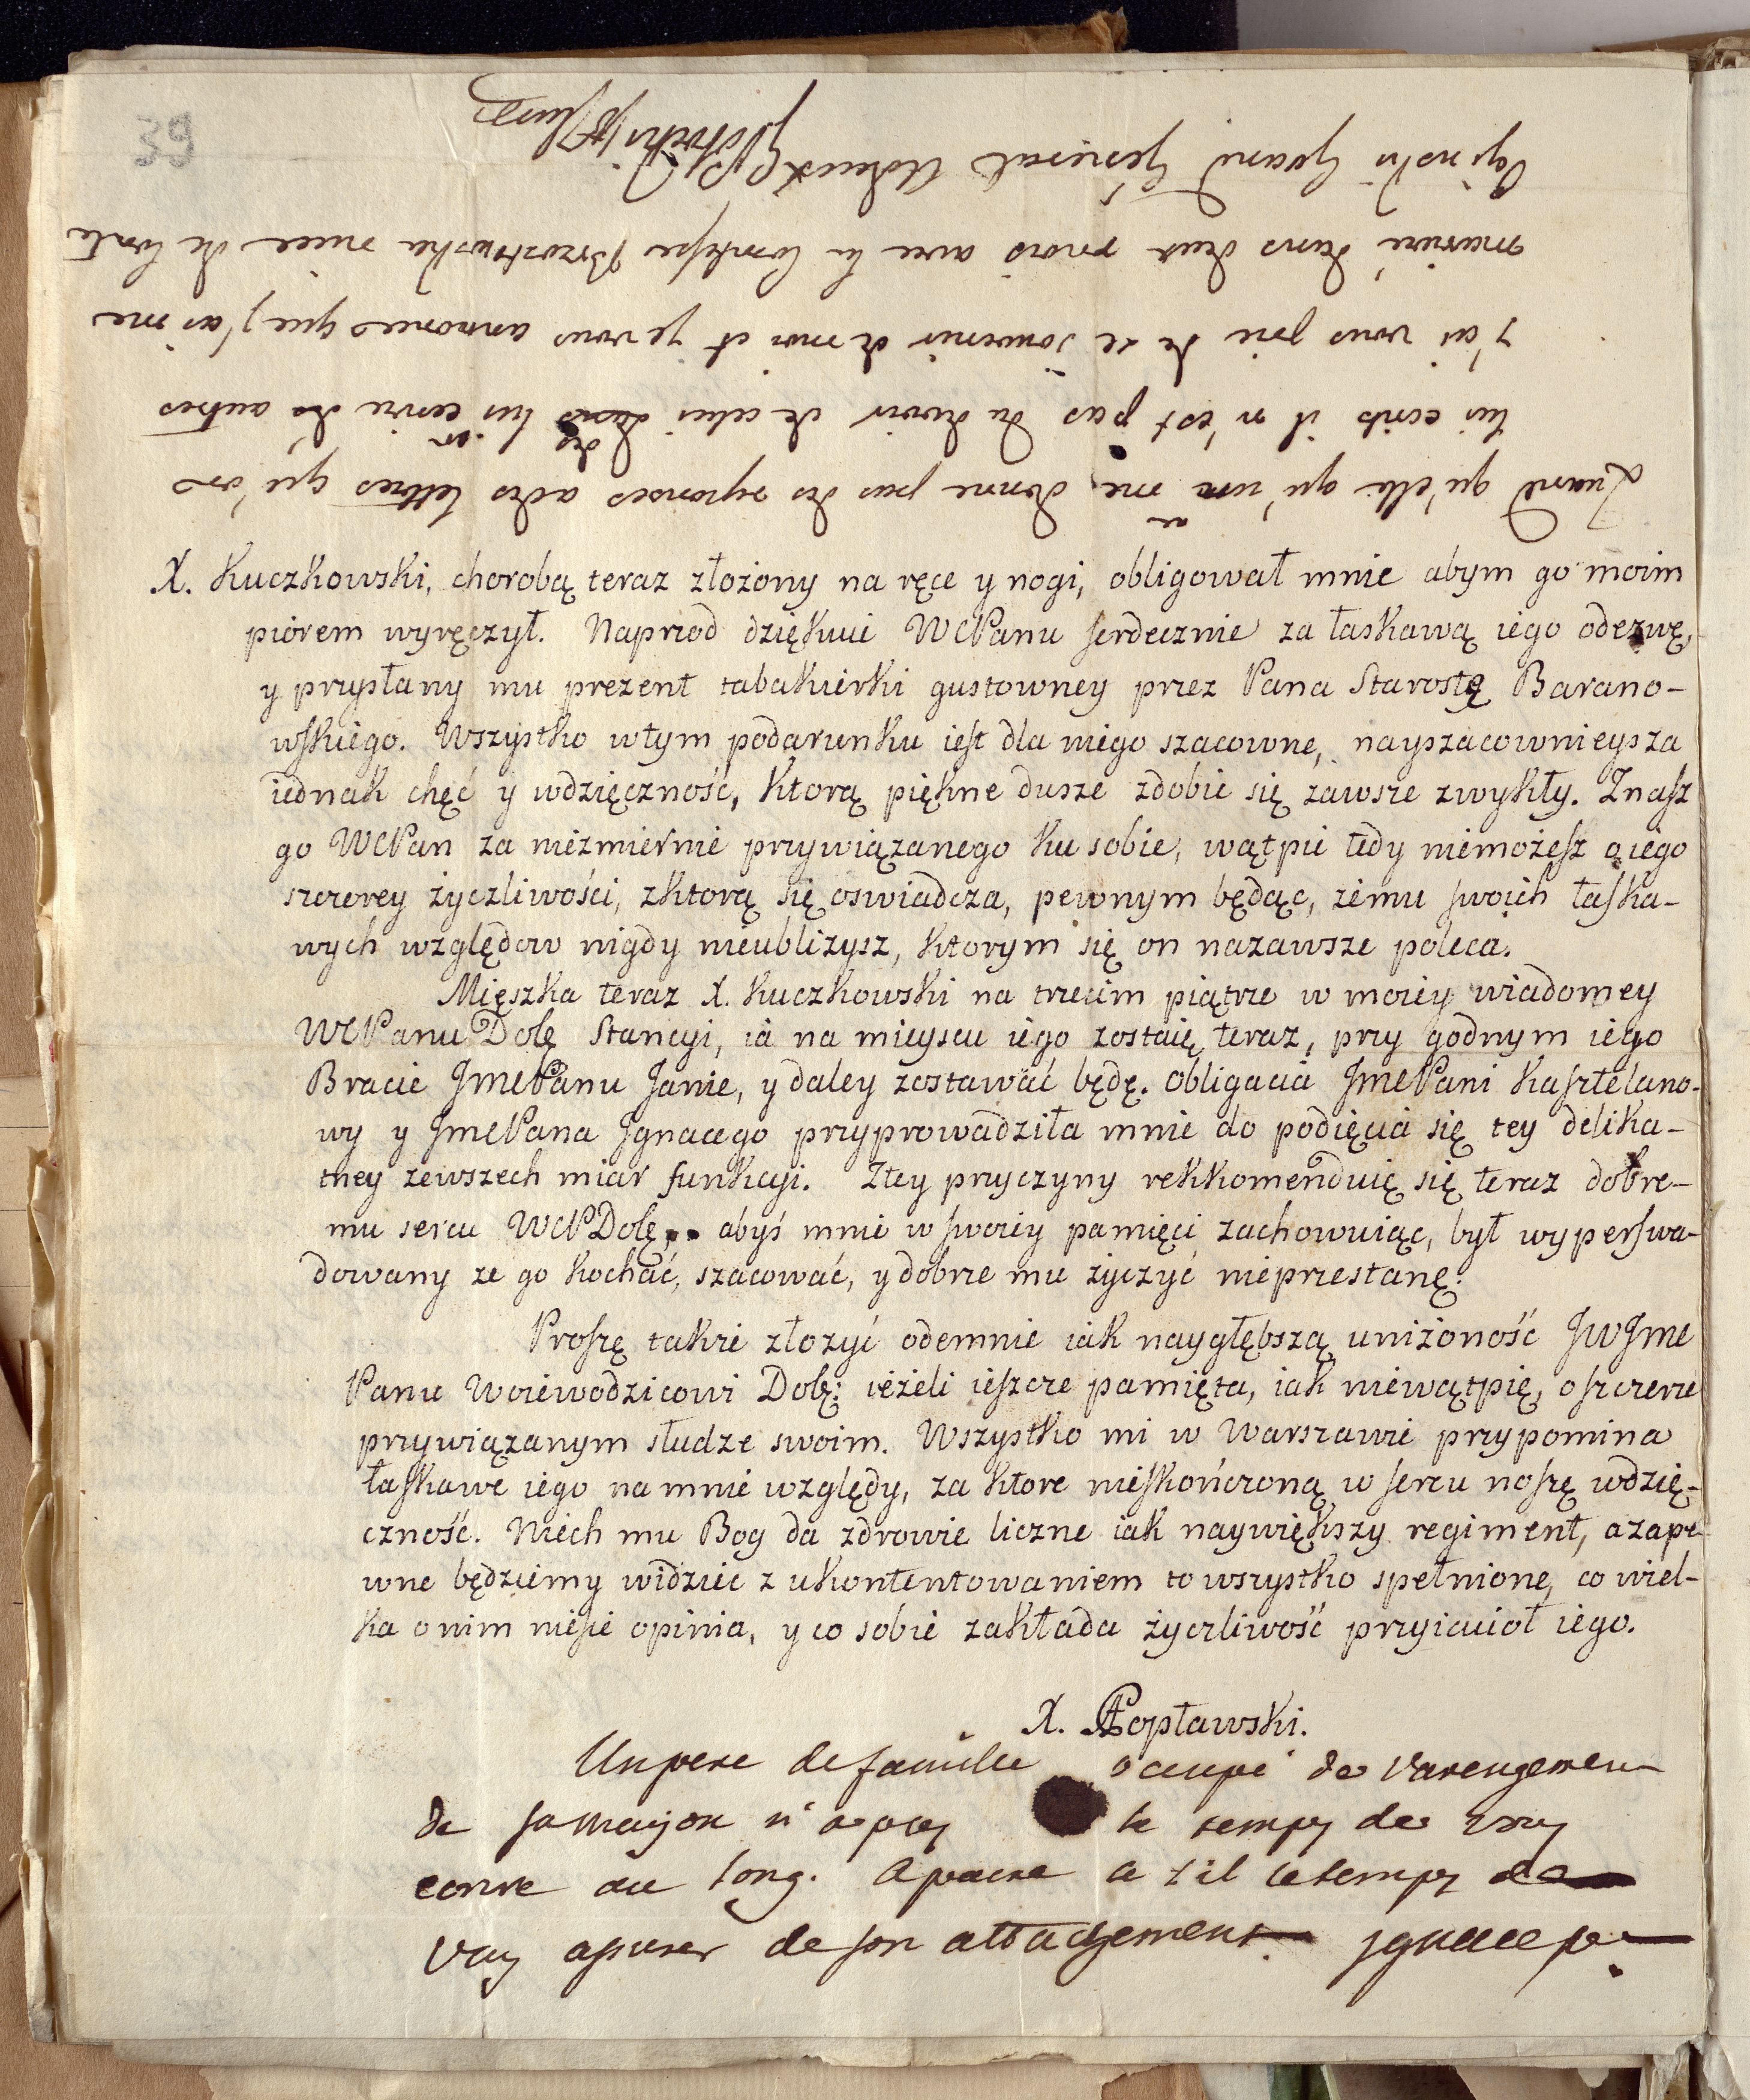 39
Quand qu'elle qu'un me donne pas des reponses a des lettres qu'on
lui ecrit il n'est pas du devoir de celui des lui ecrire des autres
j'ai vous prie de se souvenir de moi et je vous annonce que j'ai me
marierai dans deux mois avec la Comtesse Brzostowska niece de Comte
Oginski Grand General
Potocki
X. Kuczkowski, chorobą teraz złożony na ręce y nogi, obligował mnie abym go moim
piórem wyręczył. Naprzod dziękuie WCPanu serdecznie za łaskawą iego odezwę,
y przysłany mu prezent tabakierki gustowney przez Pana Starostę Barano-
wskiego. Wszystko wtym podarunku iest dla niego szacowne, nayszacownieysza
iednak chęć y wdzięczność, ktorą piękne dusze zdobić się zawsze zwykły. Znasz
go WCPan za niezmiernie przywiązanego ku sobie, wątpić tedy niemożesz o iego
szczerey życzliwości, zktorą się oswiadcza, pewnym będąc, żemu swoich łaska-
wych względow nigdy nieubliżysz, ktorym się on nazawsze poleca.
Mięszka teraz X. Kuczkowski na trzecim piątrze w moiey wiadomey
WCPanu Dolę Stancyi, ia na mieyscu iego zostaię teraz, przy godnym iego
Bracie JmcPanu Janie, y daley zostawać będę. Obligacia JmcPani Kasztelano-
wy y JmcPana Jgnacego przyprowadziła mnie do podięcia się tey delika-
tney zewszech miar funkcyi. Ztey przyczyny rekkomenduię się teraz dobre-
mu sercu WCPDolę.. abyś mnie w swoiey pamięci zachowuiąc, był wyperswa-
dowany ze go kochać, szacować, y dobrze mu życzyć nieprzestanę.
Proszę także złożyć odemnie iak naygłębszą uniżoność JWJmc
Panu Woiewodzicowi Dolę: ieżeli ieszcze pamięta, iak niewątpię, o szczerze
przywiązanym słudze swoim. Wszystko mi w Warszawie przypomina
łaskawe iego na mnie względy, za ktore nieskończoną w sercu noszę wdzię-
czność. Niech mu Bog da zdrowie liczne iak naywiększy regiment, a zape-
wne będziemy widzieć z ukontentowaniem to wszystko spełnione, co wiel-
ka o nim niesie opinia, y co sobie zakłada życzliwość przyiacioł iego.
X. APopławski.
Un pere de famille ocupé de l'arengemen
de sa maison n'a pas le temps de vous
ecrire au long. A peine a t'il le temps de
vous assurer de son attachement. Jgnace